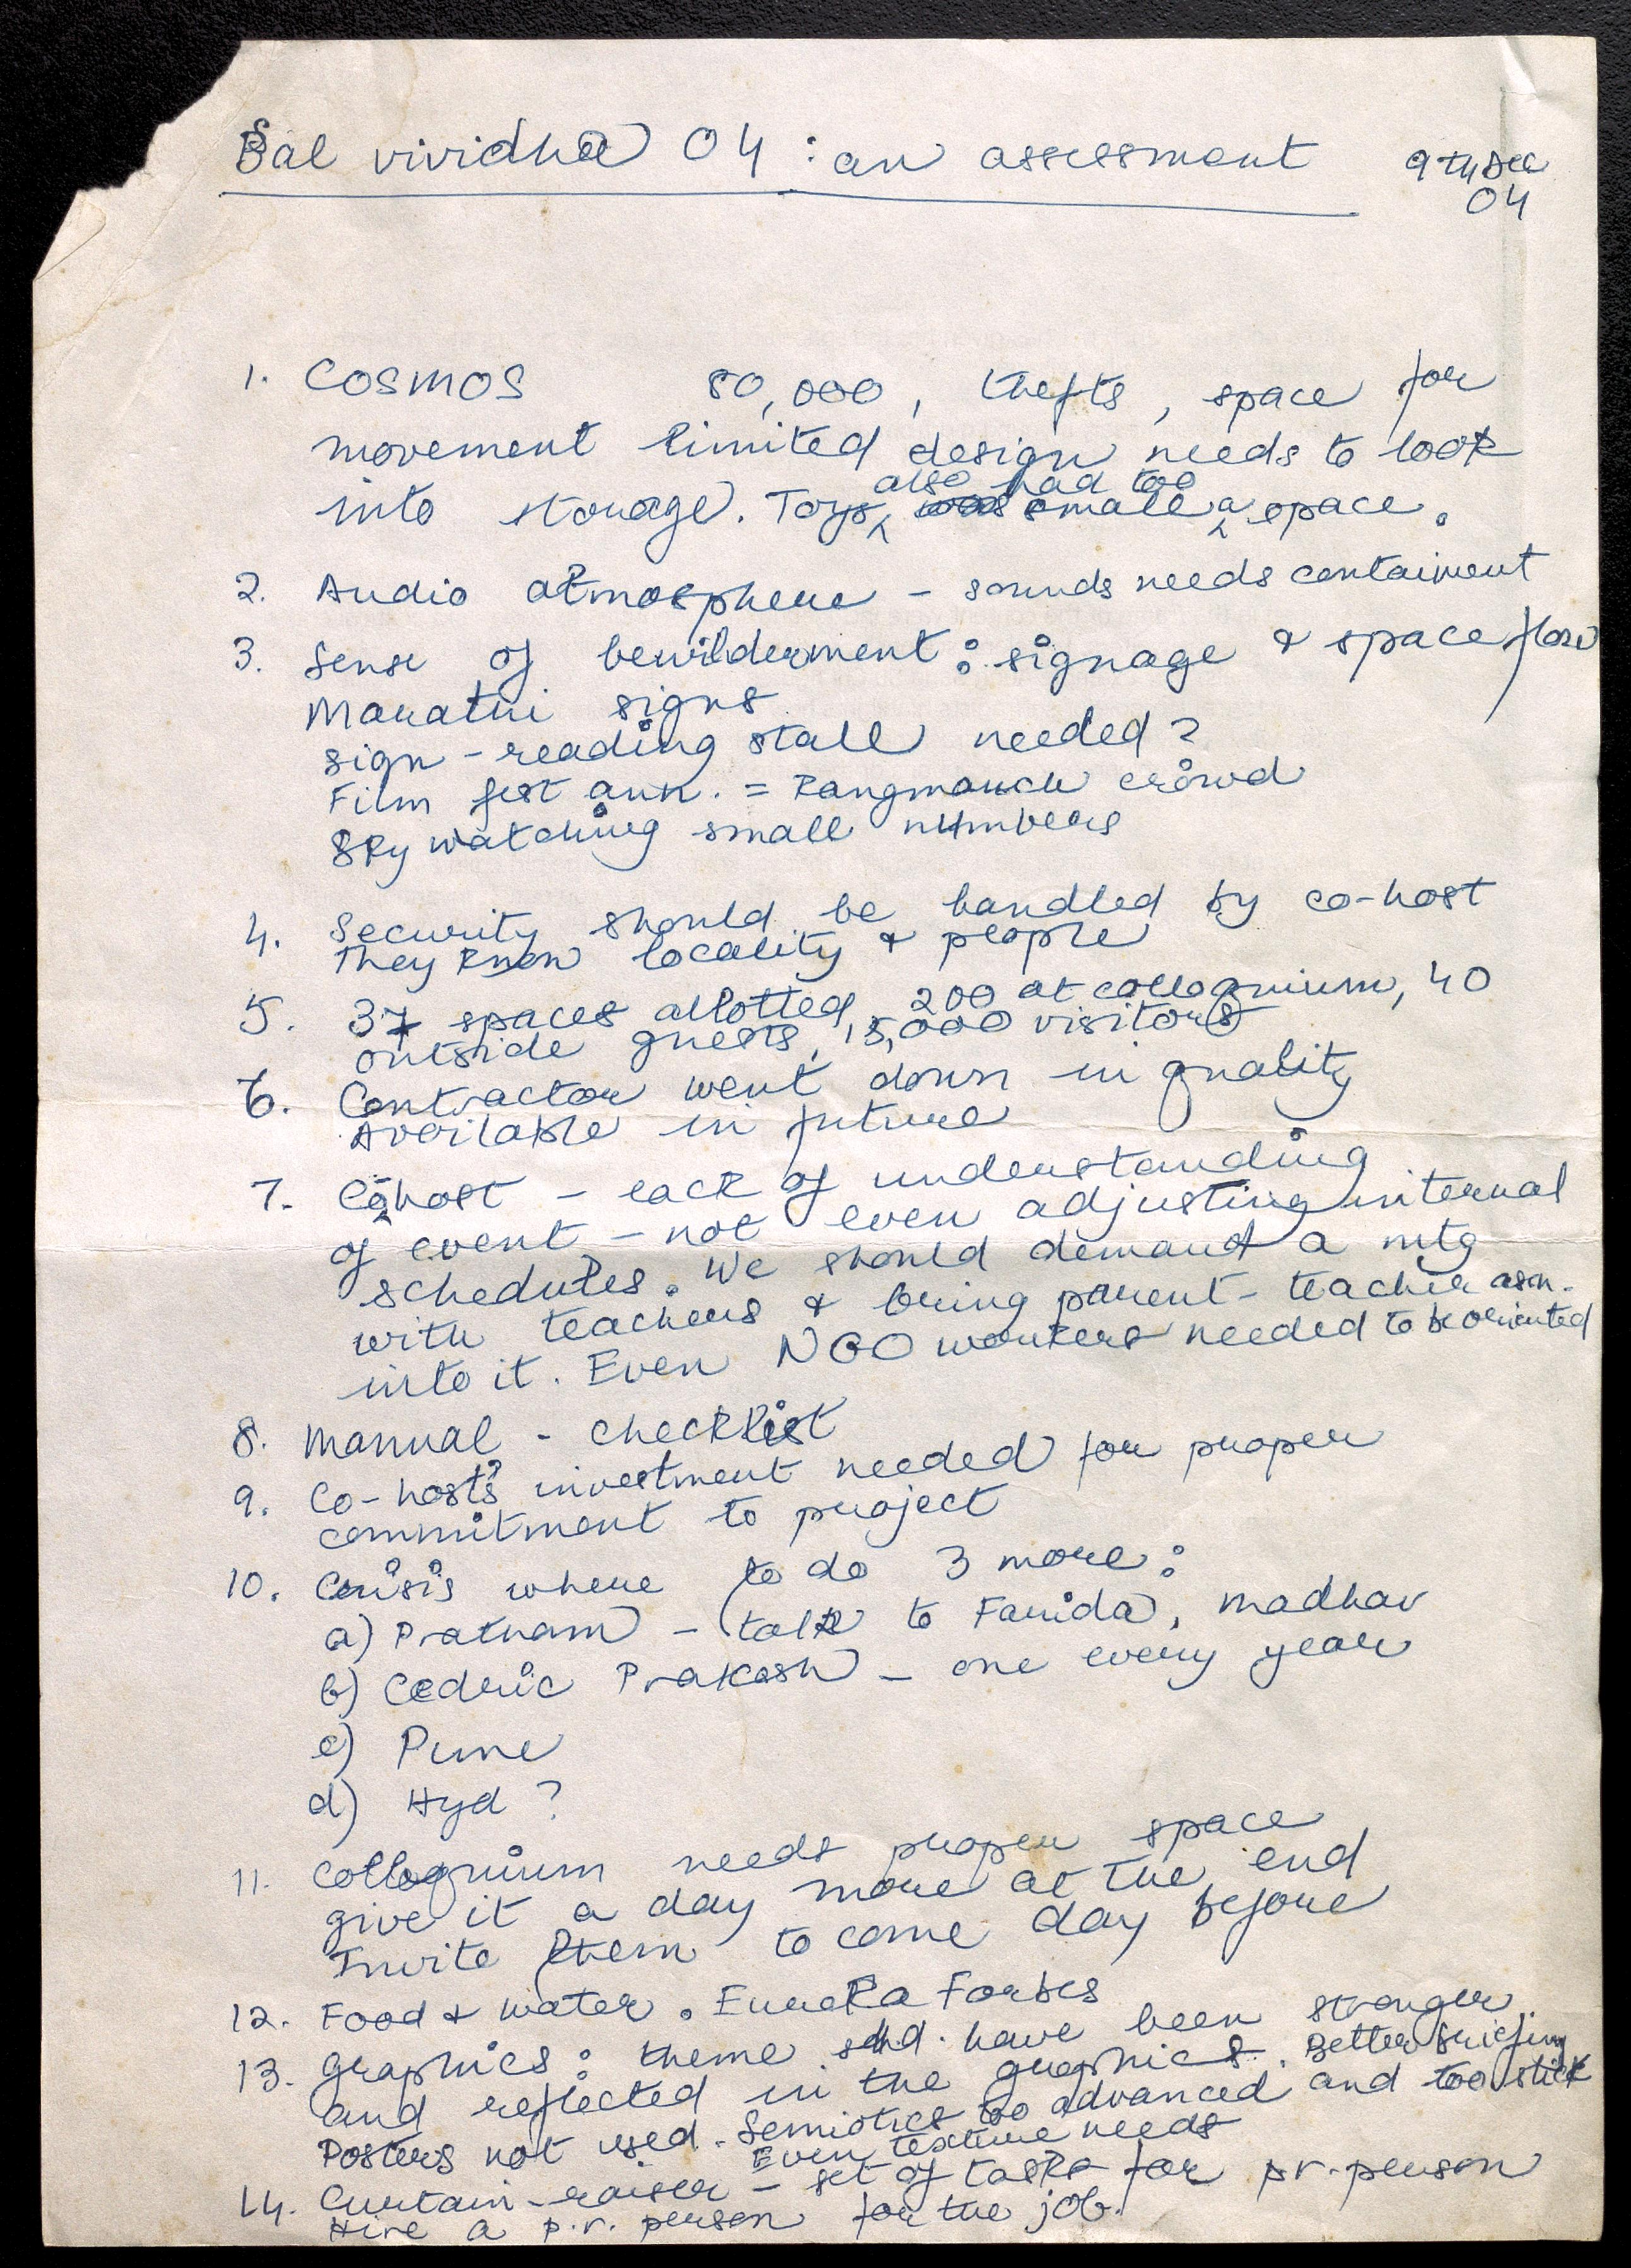 Bal vividha 04 : an assessment 9th Dec
04
1. COSMOS 80,000, thefts, space for
movement limited design needs to look
into storage. Toys also had too small a space.
2. Audio atmosphere - sounds needs containment
3. Sense of bewilderment : signage & space flow
Marathi signs
sign-reading stall needed?
Film fest ann. = Rangmanch crowd
Sky watching small numbers
4. Security should be handled by co-host
They know locality & people
5. 37 spaces allotted, 200 at colloquium, 40
outside guests, 15,000 visitors
6. Contractor went down in quality
Available in future
7. Co-host - lack of understanding
of event - not even adjusting internal
schedules. We should demand a mtg
with teachers & bring parent-teacher assn.
into it. Even NGO workers needed to be oriented
8. Manual - checklist
9. Co-host's investment needed for proper
commitment to project
10. Crisis where to do 3 more :
a) Pratham - talk to Farida, Madhav
b) Cedric Prakash - one every year
c) Pune
d) Hyd ?
11. Colloquium needs proper space
give it a day more at the end
Invite them to come day before
12. Food & water. Eureka Forbes
13. Graphics : theme shd. have been stronger
and reflected in the graphics. Better briefing
Posters not used. Semiotics too advanced and too slick
Even texture needs
14. Curtain-raiser - set of tasks for pr. person
Hire a p.r. person for the job.